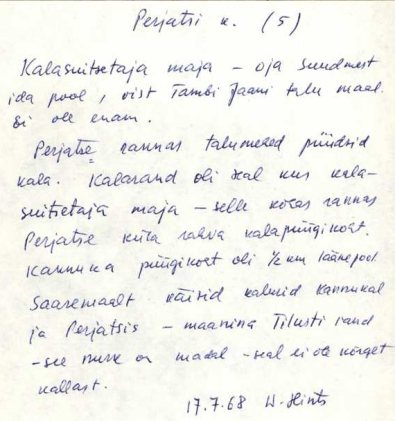 Perjatsi k. (5)
Kalasuitsetaja maja – oja suudmest
ida pool, vist Tambi Jaani talu maal.
Ei ole enam.
Perjatse rannas talumehed püüdsid
kala. Kalarand oli seal kus kala-
suitsetaja maja – selle kohas rannas
Perjatse küla rahva kalapüügikoht.
Kannuka püügikoht oli ½ km läänepool
Saaremaalt käisid kalurid Kannukal
ja Perjatsis – maanina Tilusti rand
– see nurk on madal – seal ei ole kõrget
kallast.
17.7.68 W. Hints